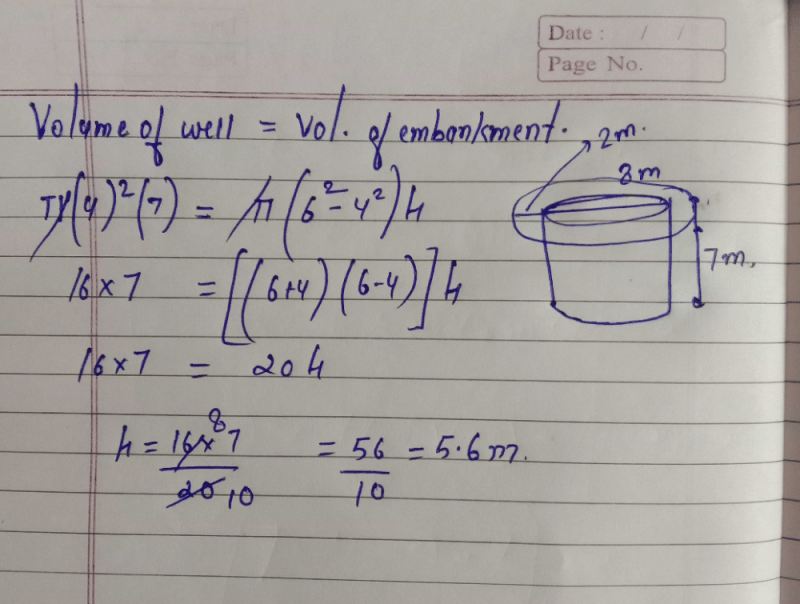 Date : / /
Page No.
Volume of well = Vol. of embankment.
2m.
8m
π(4)²(7) = π(6² - 4²)h
7m.
16 × 7 = [(6+4)(6-4)]h
16 × 7 = 20 h
h = 16 × 7 / 20 8 10 = 56 / 10 = 5.6 m.